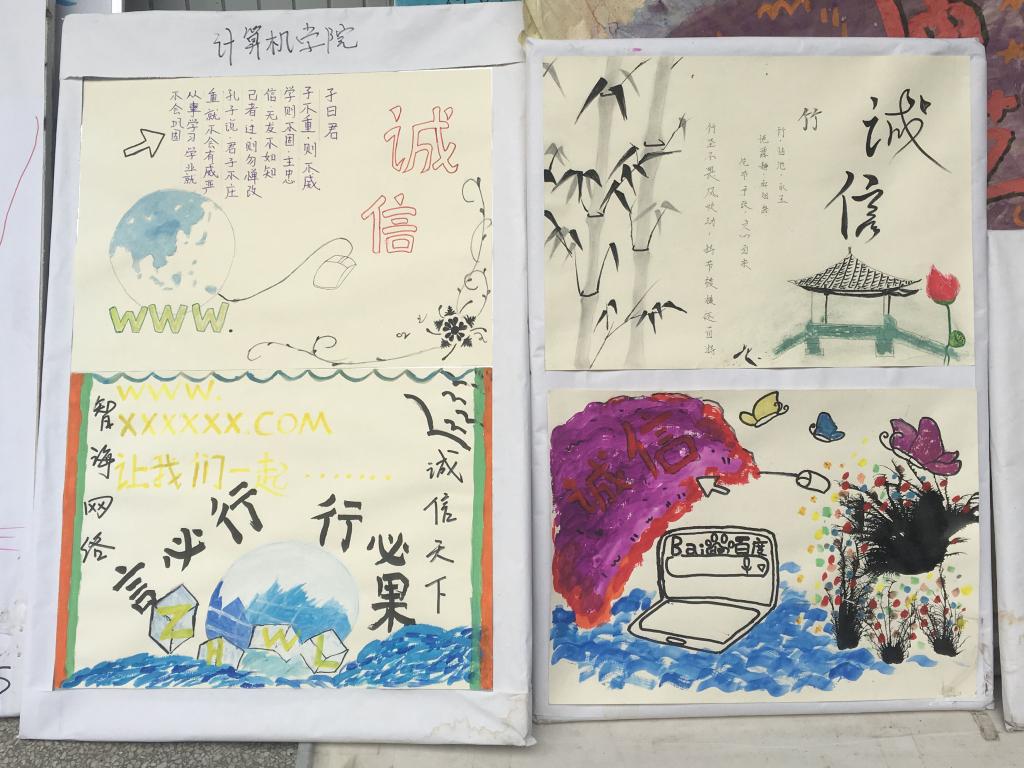 计算机学院
诚信
子曰君
子不重·则不威
学则不固·主忠
信·无友不如知
己者·过·则勿惮改
孔子说君子不庄
重就不会有威严
从事学习学业就
不会巩固
WWW.
WWW.
XXXXXX.COM
让我们一起.......
智海网络
言必行
行必果
诚信天下
ZHWL
诚信
竹
竹坚不畏风吹动·
诚信
Bai百度